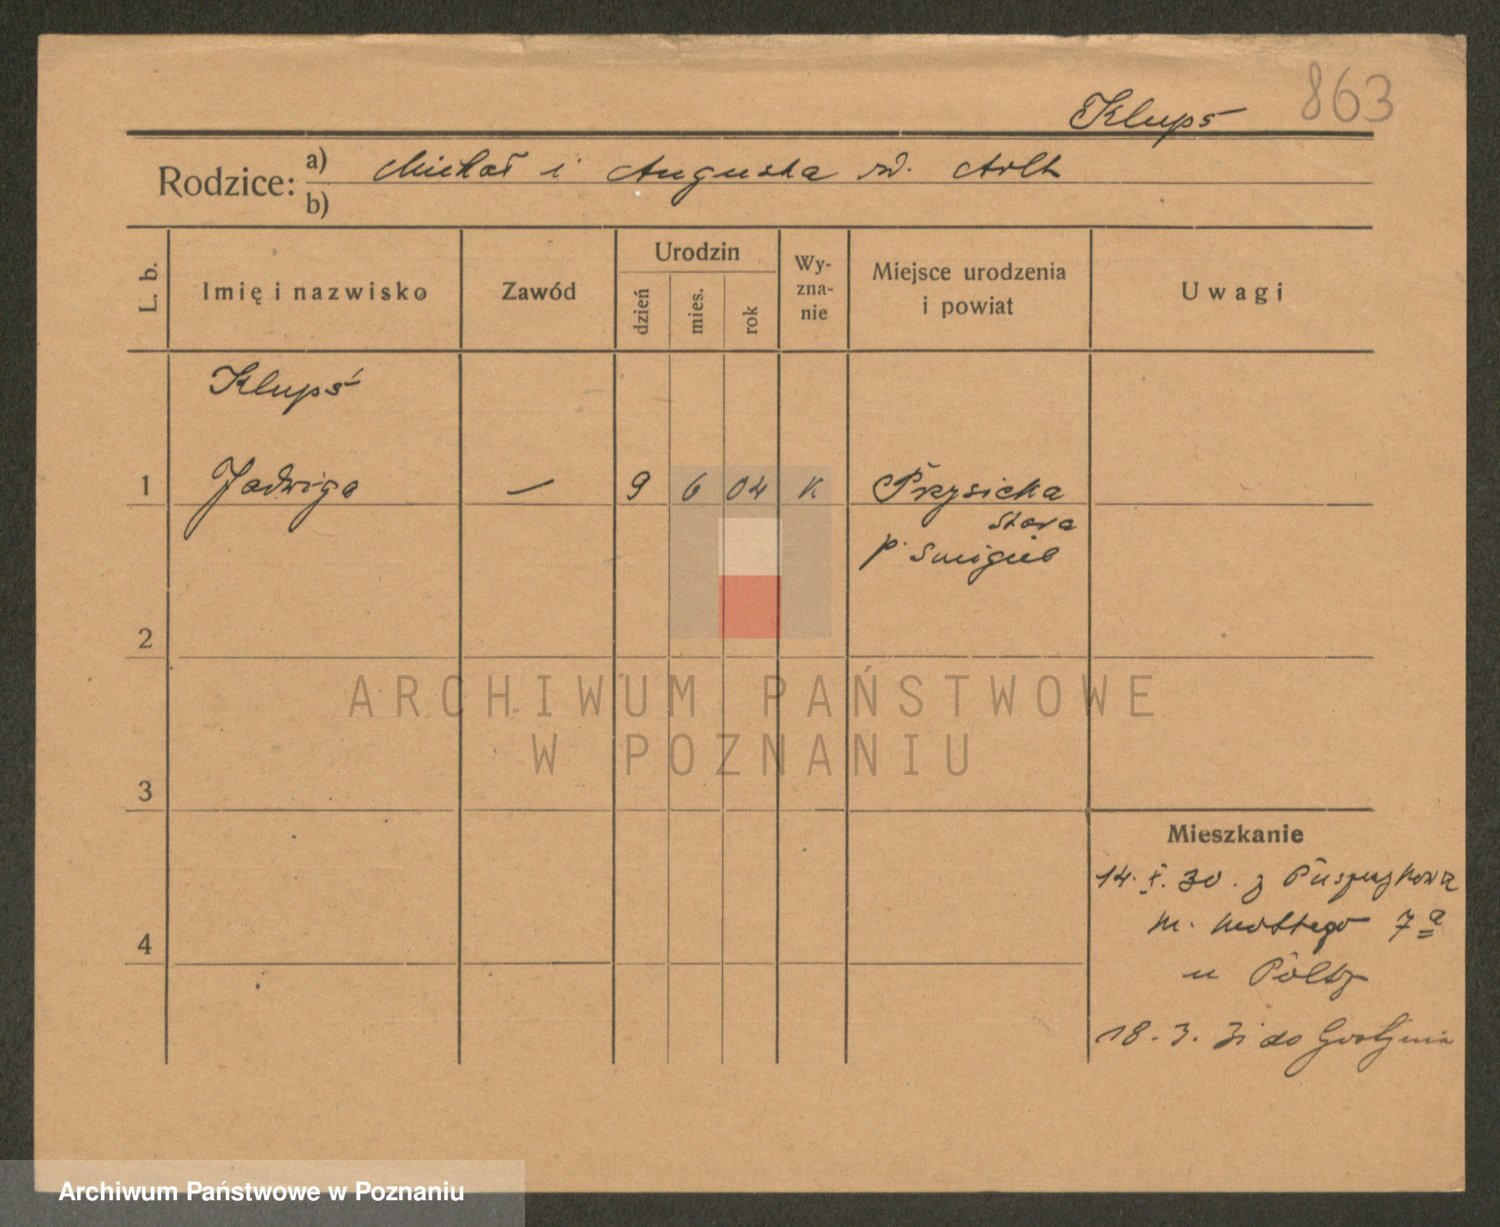 863
Klupś
Rodzice: a) Michał i Augusta
b)
L. b.
Imię i nazwisko
Zawód
Urodzin
dzień
mies.
rok
Wy-
zna-
nie
Miejsce urodzenia
i powiat
Uwagi
Klupś
1 Jadwiga — 9 6 04 K Przysieka
Stara
p. Smigiel
2
3
4
Mieszkanie
14. X. 30. z
m. 7 a
u
18. 3. 31 do
ARCHIWUM PAŃSTWOWE
W POZNANIU
Archiwum Państwowe w Poznaniu